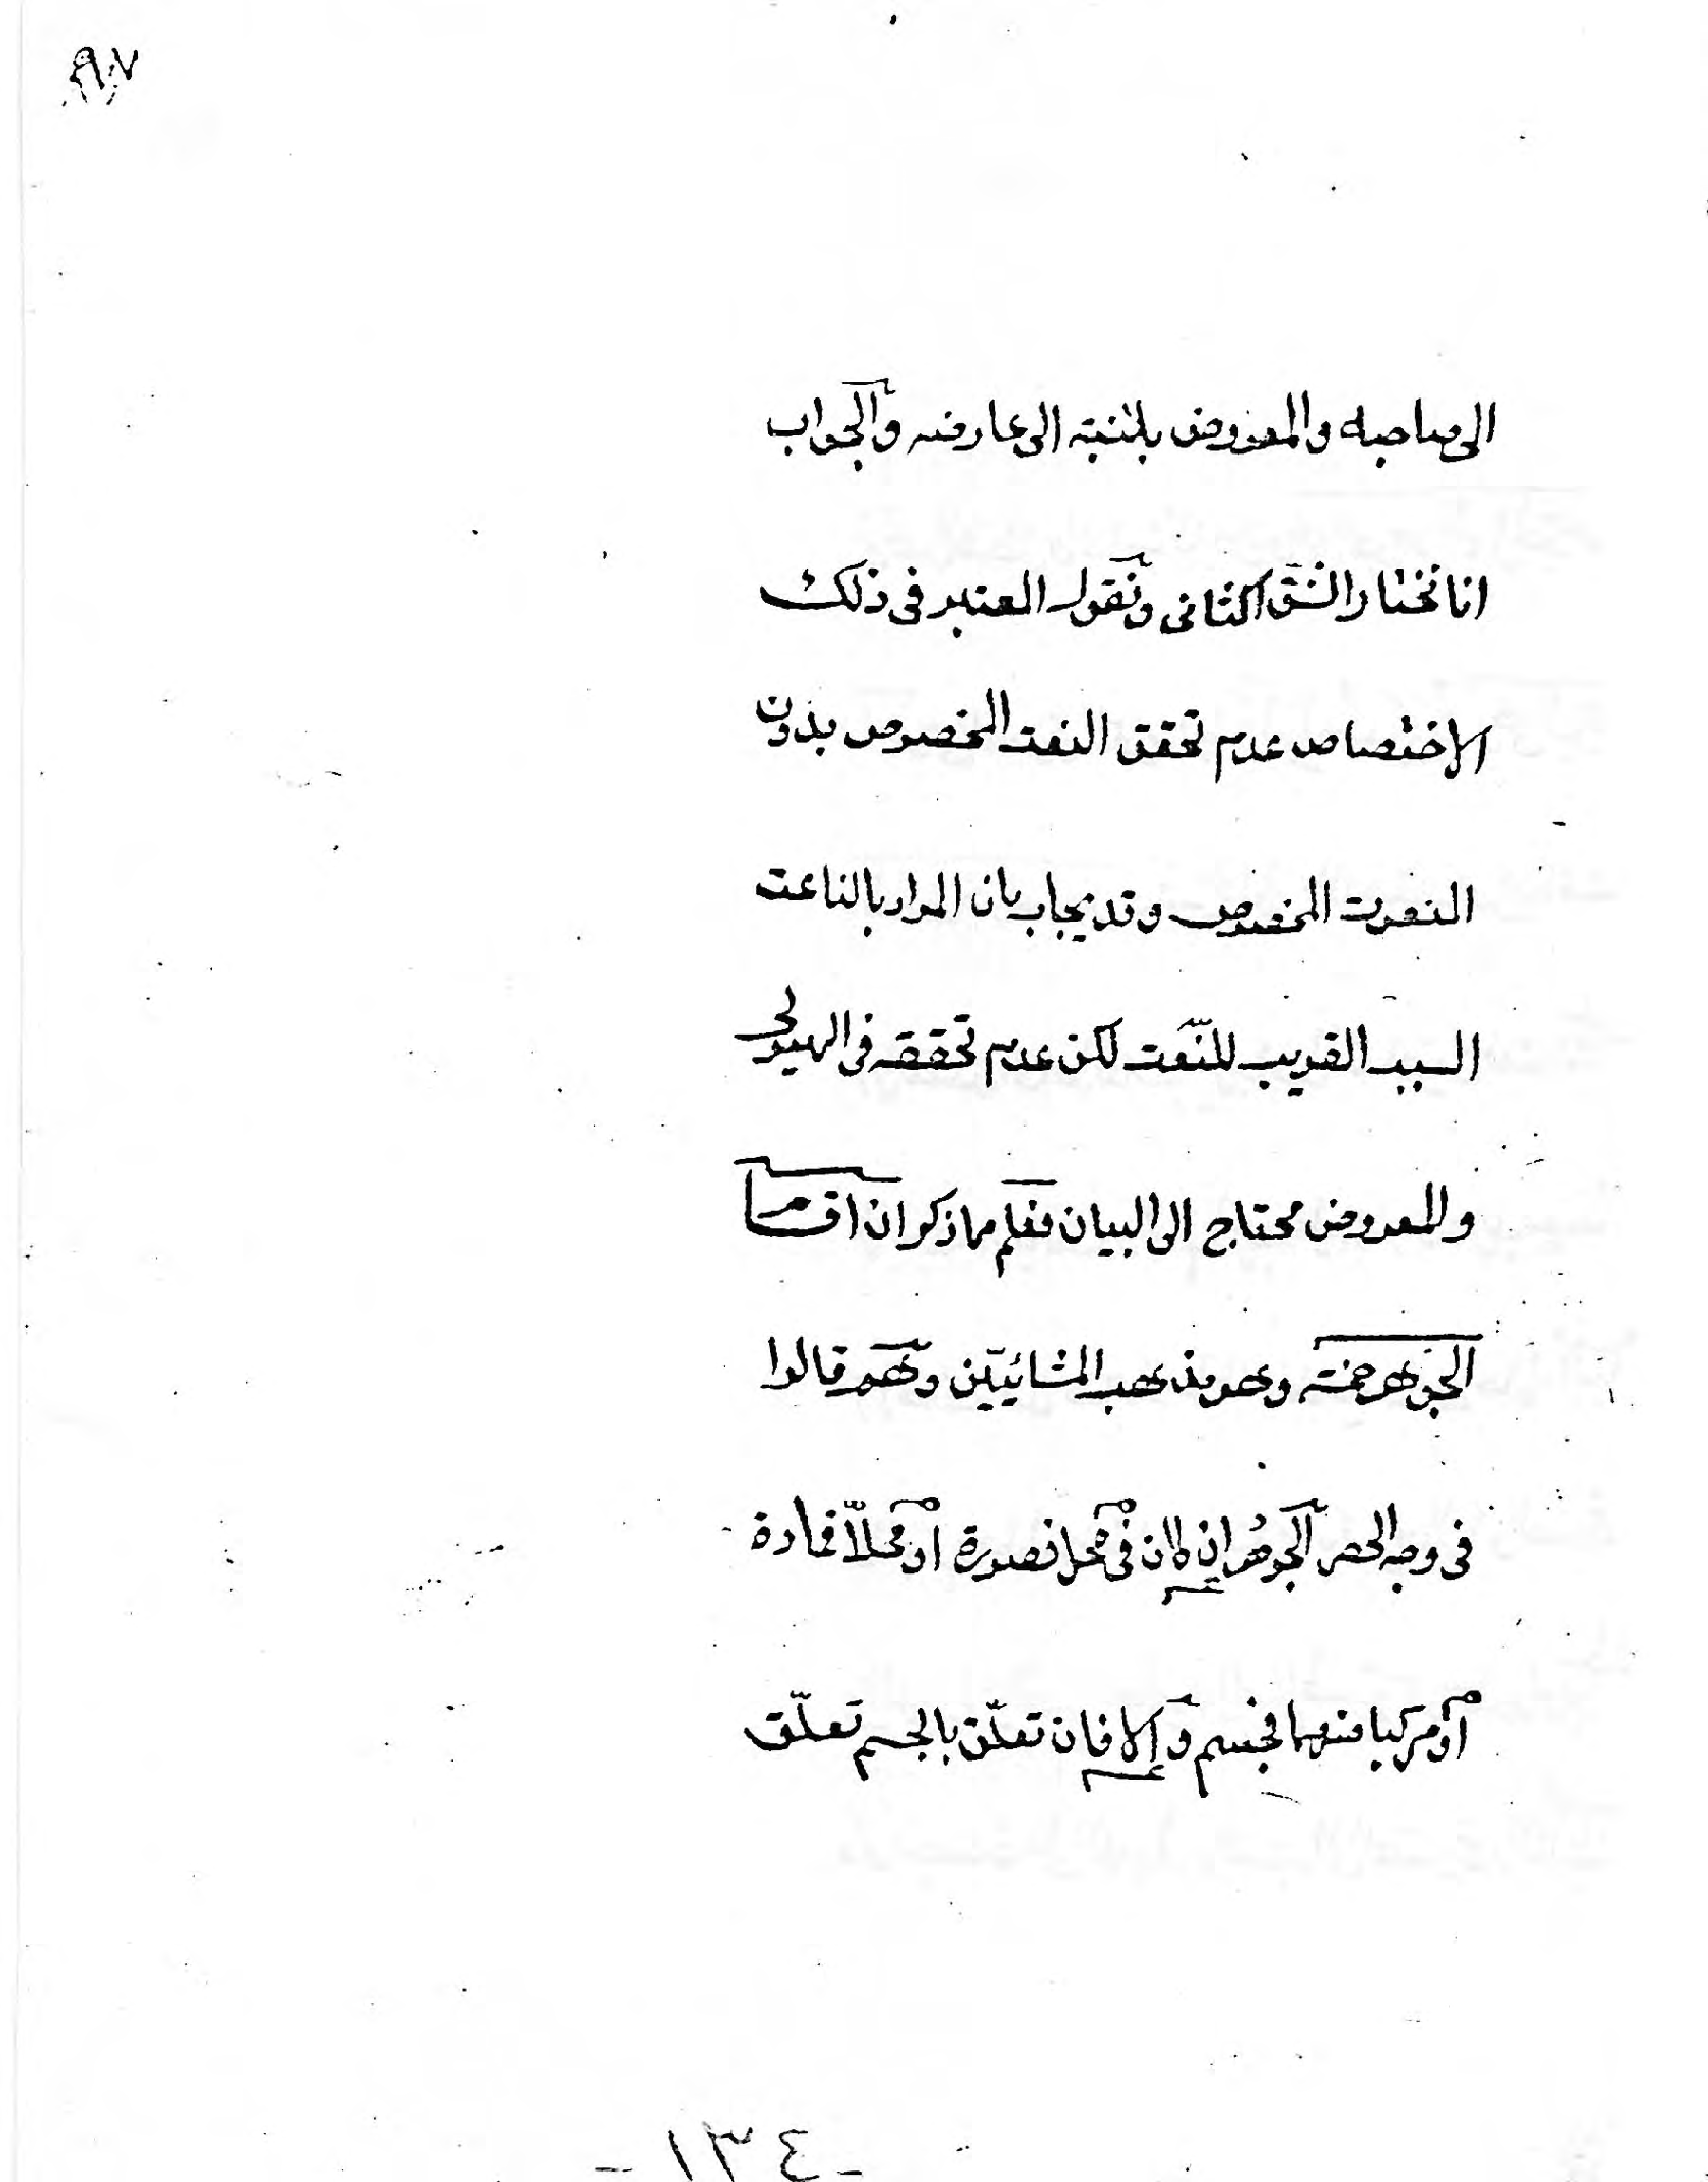 الى صاحبه والمعروض بالنسبة الى عارضه والجواب
انا نختار الشق الثانى ونقول المعتبر فى ذلك
الاختصاص عدم تحقق النعت المخصوص بدون
المنعوت المخصوص وقد يجاب بان المراد بالناعت
السبب القريب للنّعت لكن عدم تحققه فى الهيولى
والمعروض محتاج الى البيان فعلم مما ذكر ان اقسام
الجوهر خمسة وهو مذهب المشائيّين وهم قالوا
فى وجه الحصر الجوهر ان كان فى محل فصورة او محلاّ فمادة
او مركبا منهما فجسم و الا فان تعلّق بالجسم تعلّق
- ١٣٤ -